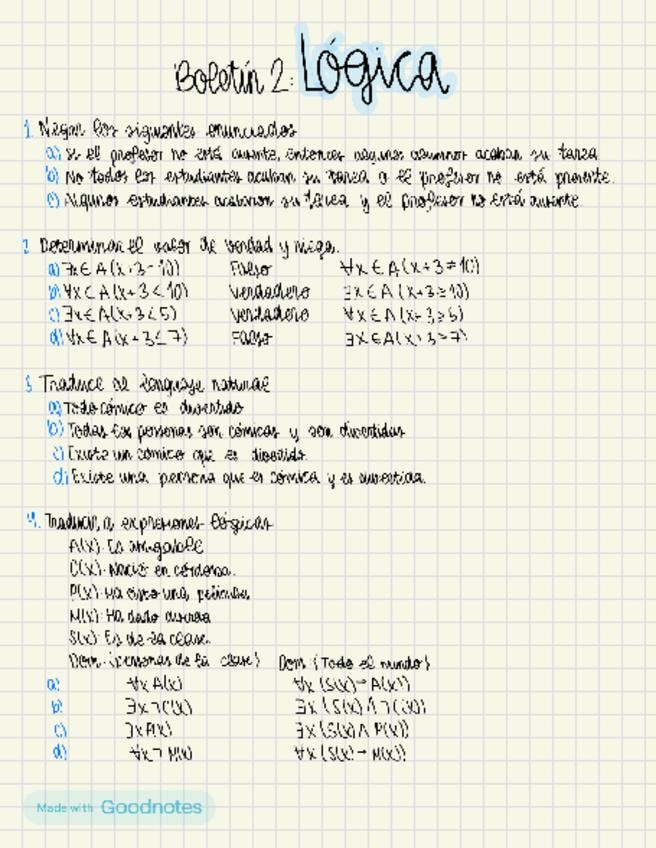 Boletín 2: Lógica
1. Negar los siguientes enunciados
a) Si el profesor no está ausente, entonces algunos alumnos acaban su tarea
b) No todos los estudiantes acaban su tarea o el profesor no está presente.
c) Algunos estudiantes acabaron su tarea y el profesor no está ausente.
2. Determinar el valor de verdad y niega.
a) ∃x∈A(x+3=10) Falso ∀x∈A(x+3≠10)
b) ∀x∈A(x+3<10) Verdadero ∃x∈A(x+3≥10)
c) ∃x∈A(x+3<5) Verdadero ∀x∈A(x+3≥5)
d) ∀x∈A(x+3≤7) Falso ∃x∈A(x+3>7)
3. Traduce al lenguaje natural
a) Todo cómico es divertido
b) Todas las personas son cómicas y son divertidas
c) Existe un cómico que es divertido.
d) Existe una persona que es cómica y es divertida.
4. Traducir a expresiones lógicas
A(x): Es amigable
C(x): Nació en córdoba.
P(x): Ha visto una película
M(x): Ha dado
S(x): Es de la clase.
Dom: {personas de la clase} Dom: {Todo el mundo}
a) ∀x A(x) ∀x (S(x)→A(x))
b) ∃x ¬C(x) ∃x (S(x)∧¬C(x))
c) ∃x P(x) ∃x (S(x)∧P(x))
d) ∀x ¬M(x) ∀x (S(x)→M(x))
Made with Goodnotes